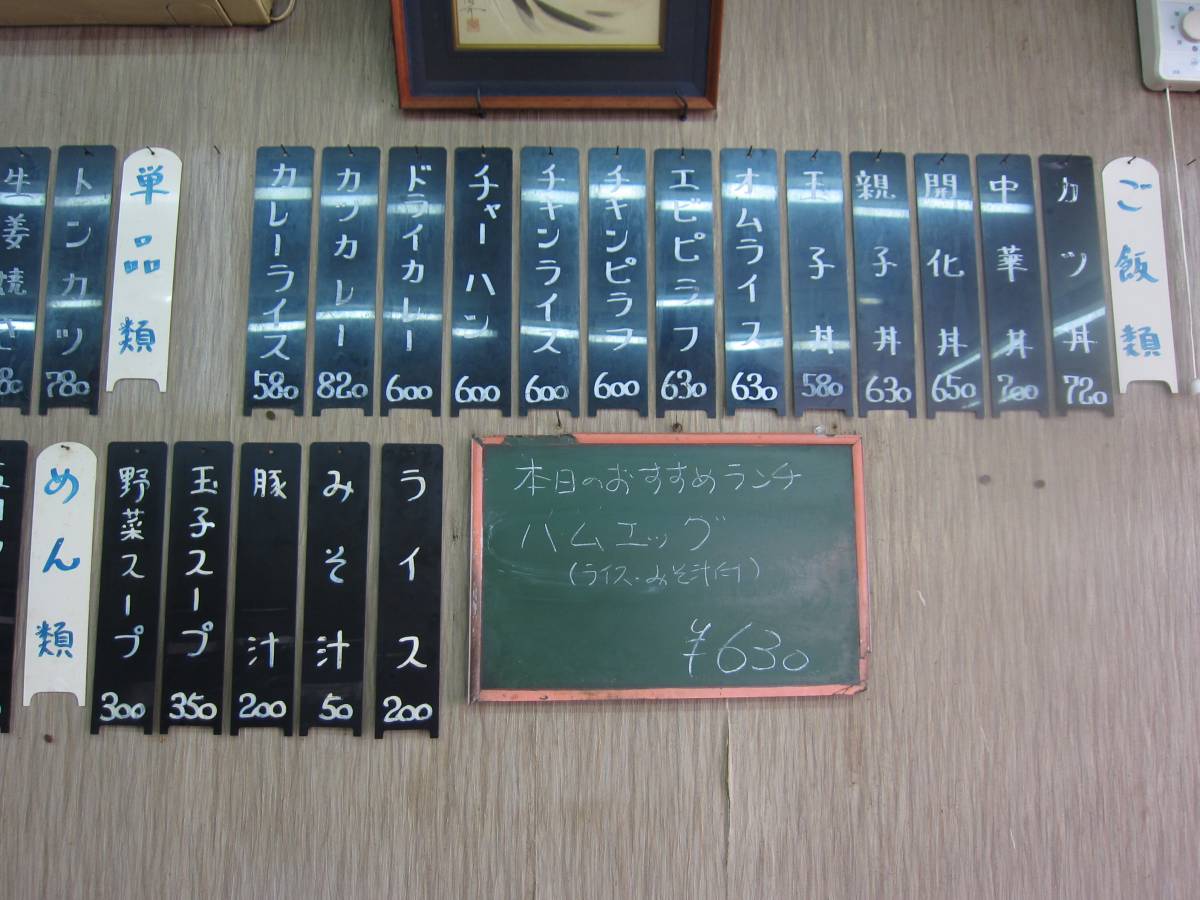 ご飯類
カツ丼 720
中華丼 700
開化丼 650
親子丼 630
玉子丼 580
オムライス 630
エビピラフ 630
チキンピラフ 600
チキンライス 600
チャーハン 600
ドライカレー 600
カツカレー 820
カレーライス 580
単品類
トンカツ 780
生姜焼き
ライス 200
みそ汁 50
豚汁 200
玉子スープ 350
野菜スープ 300
めん類
本日のおすすめランチ
ハムエッグ
(ライス・みそ汁付)
¥630